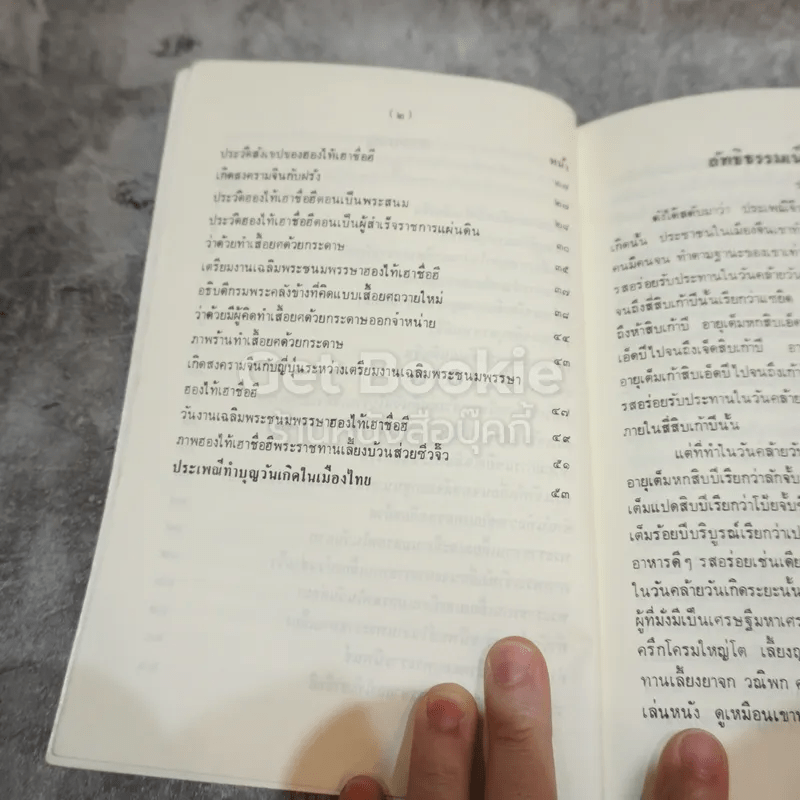 (๒)
หน้า
ประวัติสังเขปของฮองไทเฮาซื่อฮี ๒๗
เกิดสงครามจีนกับฝรั่ง ๒๗
ประวัติฮองไท้เฮาซื่อฮีตอนเป็นพระสนม ๒๘
ประวัติฮองไท้เฮาซื่อฮีตอนเป็นผู้สำเร็จราชการแผ่นดิน ๓๐
ว่าด้วยทำเสื้อยศด้วยกระดาษ ๓๕
เตรียมงานเฉลิมพระชนมพรรษาฮองไท้เฮาซื่อฮี ๓๗
อธิบดีกรมพระคลังข้างที่คิดแบบเสื้อยศถวายใหม่ ๓๘
ว่าด้วยมีผู้คิดทำเสื้อยศด้วยกระดาษออกจำหน่าย ๔๔
ภาพร้านทำเสื้อยศด้วยกระดาษ ๔๓
เกิดสงครามจีนกับญี่ปุ่นระหว่างเตรียมงานเฉลิมพระชนมพรรษา
ฮองไท้เฮาซื่อฮี ๔๗
วันงานเฉลิมพระชนมพรรษาฮองไท้เฮาซื่อฮี ๔๙
ภาพฮองไท้เฮาซื่อฮีพระราชทานเลี้ยงบ้วนส่วยซีวจิ๋ว ๕๑
ประเพณีทำบุญวันเกิดในเมืองไทย ๕๓
ลัทธิธรรมเนี
ดำได้สดับมาว่า ประเพณีจี
เกิดนั้น ประชาชนในเมืองจีนเขาทำ
คนมีคนจน ทำตามฐานะของเขาเท่า
รสอร่อยรับประทานในวันคล้ายวัน
จนถึงสี่สิบเก้าปีนั้นเรียกว่าแซยิด
ถึงห้าสิบเก้าปี อายุเต็มหกสิบเอ็ด
เอ็ดปีไปจนถึงเจ็ดสิบเก้าปี อา
อายุเต็มเก้าสิบเอ็ดปีไปจนถึงเก้า
รสอร่อยรับประทานในวันคล้าย
ภายในสี่สิบเก้าปีนั้น
แต่ที่ทำในวันคล้ายวัน
อายุเต็มหกสิบปีเรียกว่าลักจั้บ
เต็มแปดสิบปีเรียกว่าโป้ยจั้บ
เต็มร้อยปีบริบูรณ์เรียกว่าเป
อาหารดีๆ รสอร่อยเช่นเดีย
ในวันคล้ายวันเกิดระยะนั้น
ผู้ที่มั่งมีเป็นเศรษฐีมหาเศร
ครึกโครมใหญ่โต เลี้ยงญ
ทานเลี้ยงยาจก วณิพก ค
เล่นหนัง ดูเหมือนเขา
Get Bookie
ร้านหนังสือบุ๊คกี้